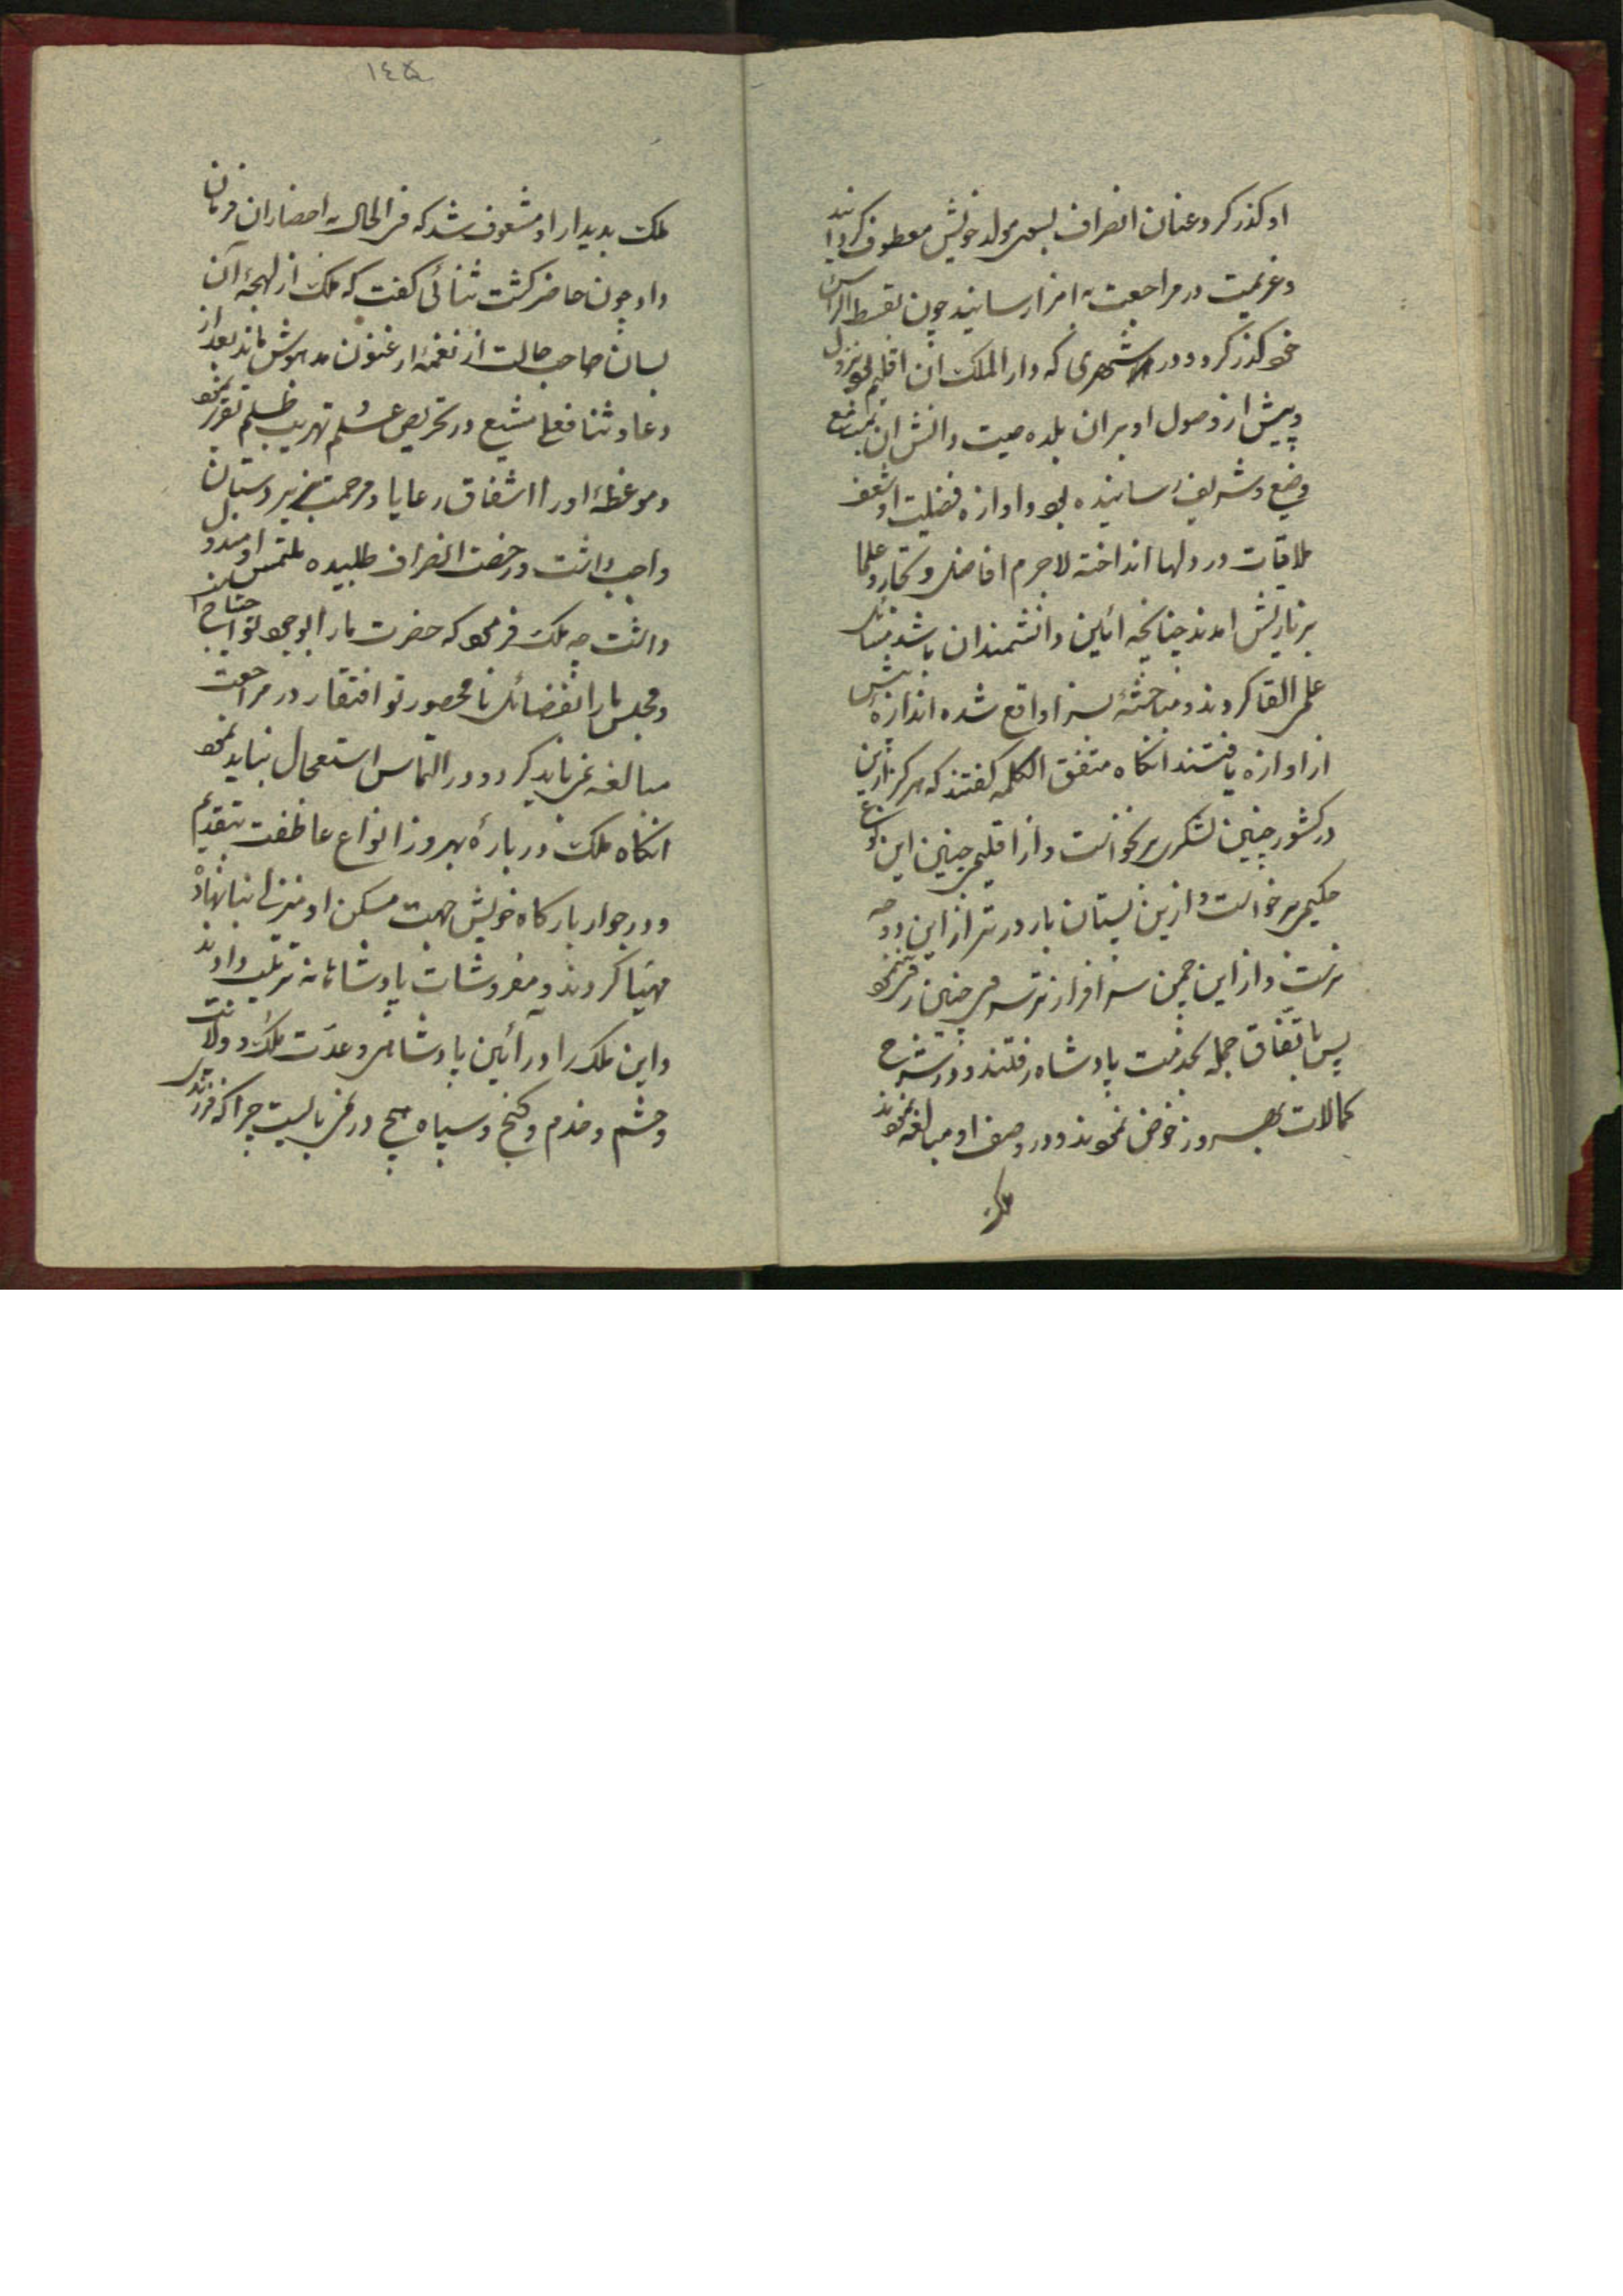 او کذر کرد و عنان انصراف بسوی مولد خویش معطوف کردانید
و عزیمت در مراجعت به امرار رسانید چون بمسقط الراس
خود کذر کرد و در شهری که دار الملک ان اقلیم بود نزول
و پیش از وصول او بران بلده صیت دانش ان بمسامع
وضیع و شریف رسانیده بود و اوازه فضلیت او شعف
ملاقات در دلها انداخته لاجرم افاضل و علما
بزیارتش امدند چنانچه ائین دانشمندان باشد مسائل
علمی القا کردند و مباحثه بسزا واقع شده اندازه بیش
از اوازه یافتند انکاه متفق الکلمه کفتند که هرکز ازین
در کشور چنین لشکری برنخواست و از اقلیمی چنین این نوع
حکیمی برنخواست و ازین بستان بارورتر از این دوحه
نرست و از این چمن سرافرازتر سروی چنین
پس باتفاق جمله بخدمت پادشاه رفتند و در شرح
کمالات بهروز خوض نمودند و در وصف او مبالغه نمودند
ملک
١٤٥
ملک بدیدار او مشعوف شد که فی الحال به احضار ان فرمان
داد چون حاضر کشت ثنائی کفت که ملک از لهجهٔ آن
لسان صاحب حالت از نغمهٔ ارغنون مدهوش ماند بعد از
دعا و ثنا فصلی مشبع در تحریص عدل و تهریب ظلم تقریر نمود
و موعظهٔ او را اشفاق رعایا و مرحمت زیردستان
واجب دانست و رخصت انصراف طلبیده ملتمس او مبذول
دانست چه ملک فرمود که حضرت ما را بوجود تو احتیاج
و مجلس ما را بفضائل نامحصور تو افتقار در مراجعت
مبالغه نمی باید کرد و در التماس استعجال نباید نمود
انکاه ملک در بارهٔ بهروز انواع عاطفت بتقدیم
و در جوار بارکاه خویش جهت مسکن او منزلی بنا نهاد
مهیا کردند و مفروشات پادشاهانه ترتیب دادند
و این ملک را در آئین پادشاهی و عدّت ملک و ولایت
و حشم و خدم و کنج و سپاه هیچ در نمی بایست چرا که فرزندی